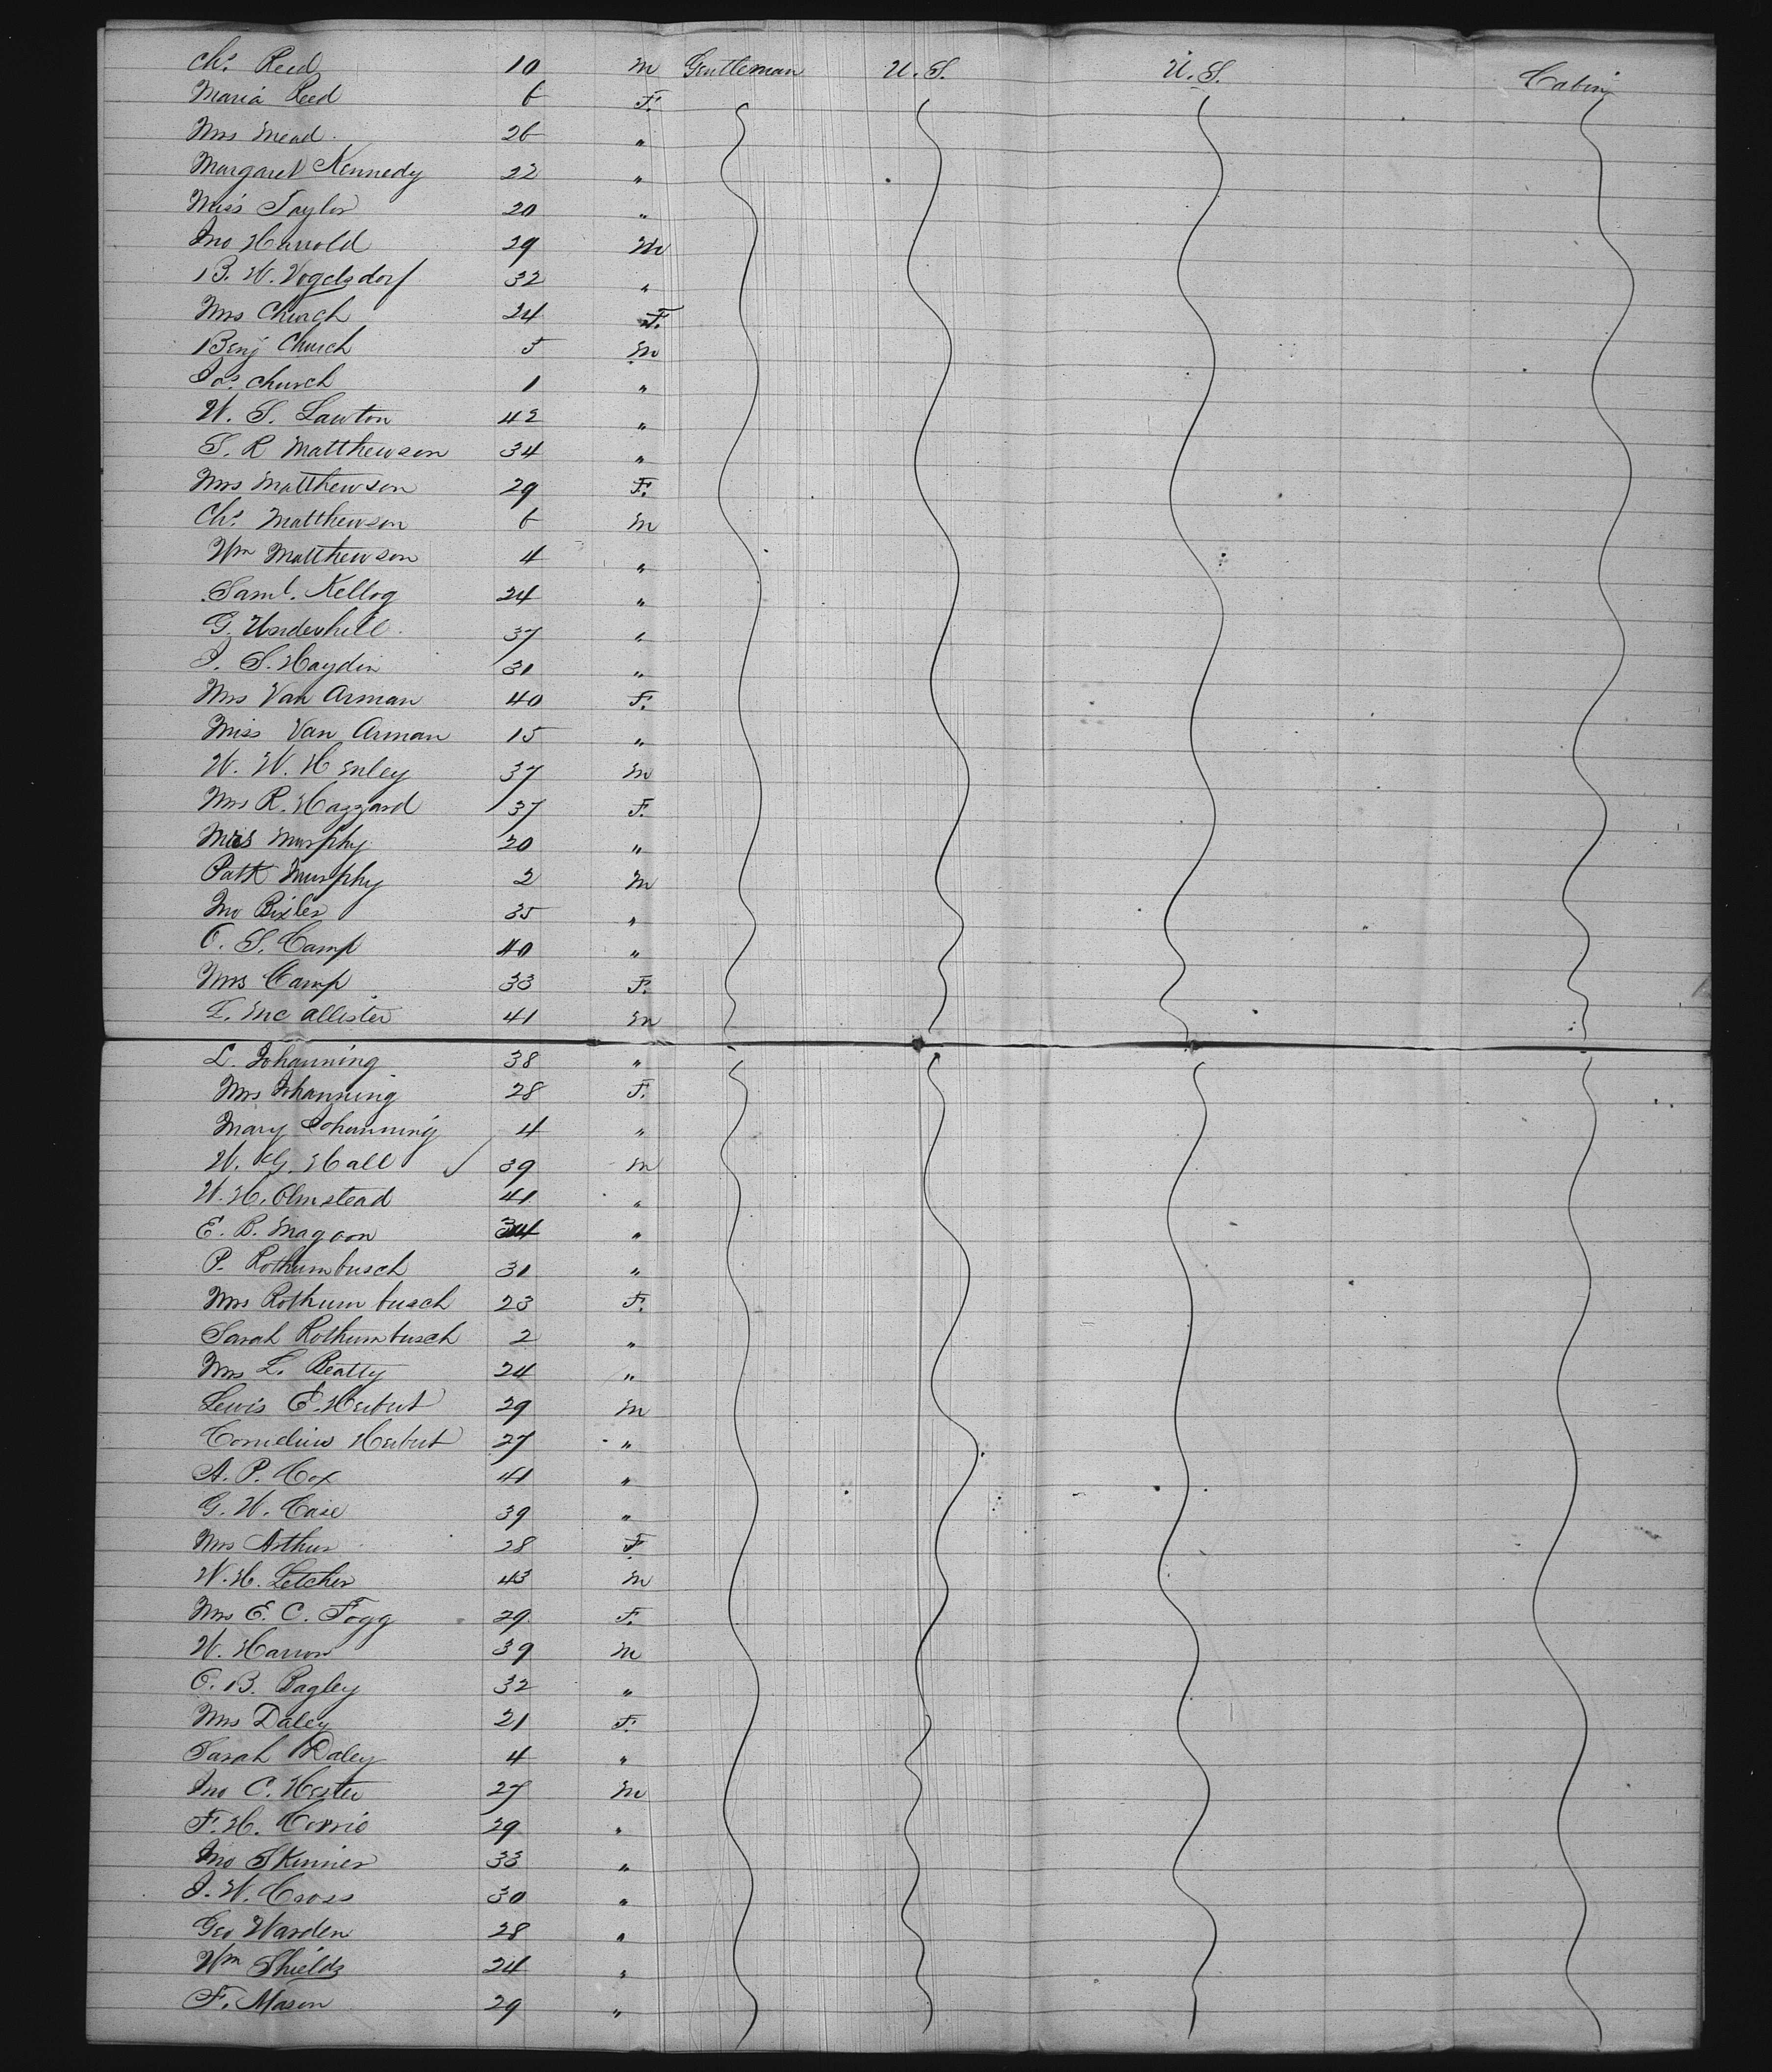 Chs. Reed 10 M Gentleman U.S. U.S. Cabin
Maria Reed 6 F.
Mrs Mead 26 "
Margaret Kennedy 22 "
Miss Taylor 20 "
Jno Harrold 29 M
B. W. Vogelsdorf 32 "
Mrs Church 24 F.
Benj Church 5 M
Jas. Church 1 "
W. S. Lawton 42 "
S. R Matthewson 34 "
Mrs Matthewson 29 F.
Chs. Matthewson 6 M
Wm Matthewson 4 "
Saml. Kellog 24 "
G. Underhill 37 "
J. S. Haydin 31 "
Mrs Van Arman 40 F.
Miss Van Arman 15 "
W. W. Henley 37 M
Mrs R. Hazzard 37 F.
Mrs Murphy 20 "
Patk Murphy 2 M
Jno Bixler 35 "
O. S. Camp 40 "
Mrs Camp 33 F.
L. McAllister 41 M
L. Johanning 38 "
Mrs Johanning 28 F.
Mary Johanning 4 "
W. G. Hall 39 M
W. H. Olmstead 41 "
E. B. Magoon 34 "
P. Rothumbusch 31 "
Mrs Rothumbusch 23 F.
Sarah Rothumbusch 2 "
Mrs L. Beatty 24 "
Lewis E. Herbert 29 M
Cornelius Herbert 27 "
A. P. Cox 41 "
G. W. Case 39 "
Mrs Arthur 28 F.
W. H. Letcher 43 M
Mrs E. C. Fogg 29 F.
W. Harron 39 M
O. B. Bagley 32 "
Mrs Daley 21 F.
Sarah Daley 4 "
Jno C. Hester 27 M
F. H. 29 "
Jno Skinner 33 "
J. W. Cross 30 "
Geo Warden 28 "
Wm Shields 24 "
F. Mason 29 "